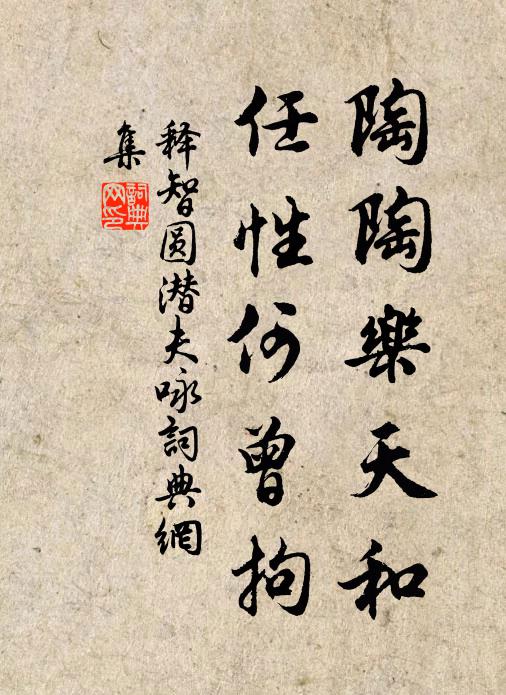 陶陶樂天和
任性何曾拘
释智圆潜夫咏詞典網
集
詞典
网印